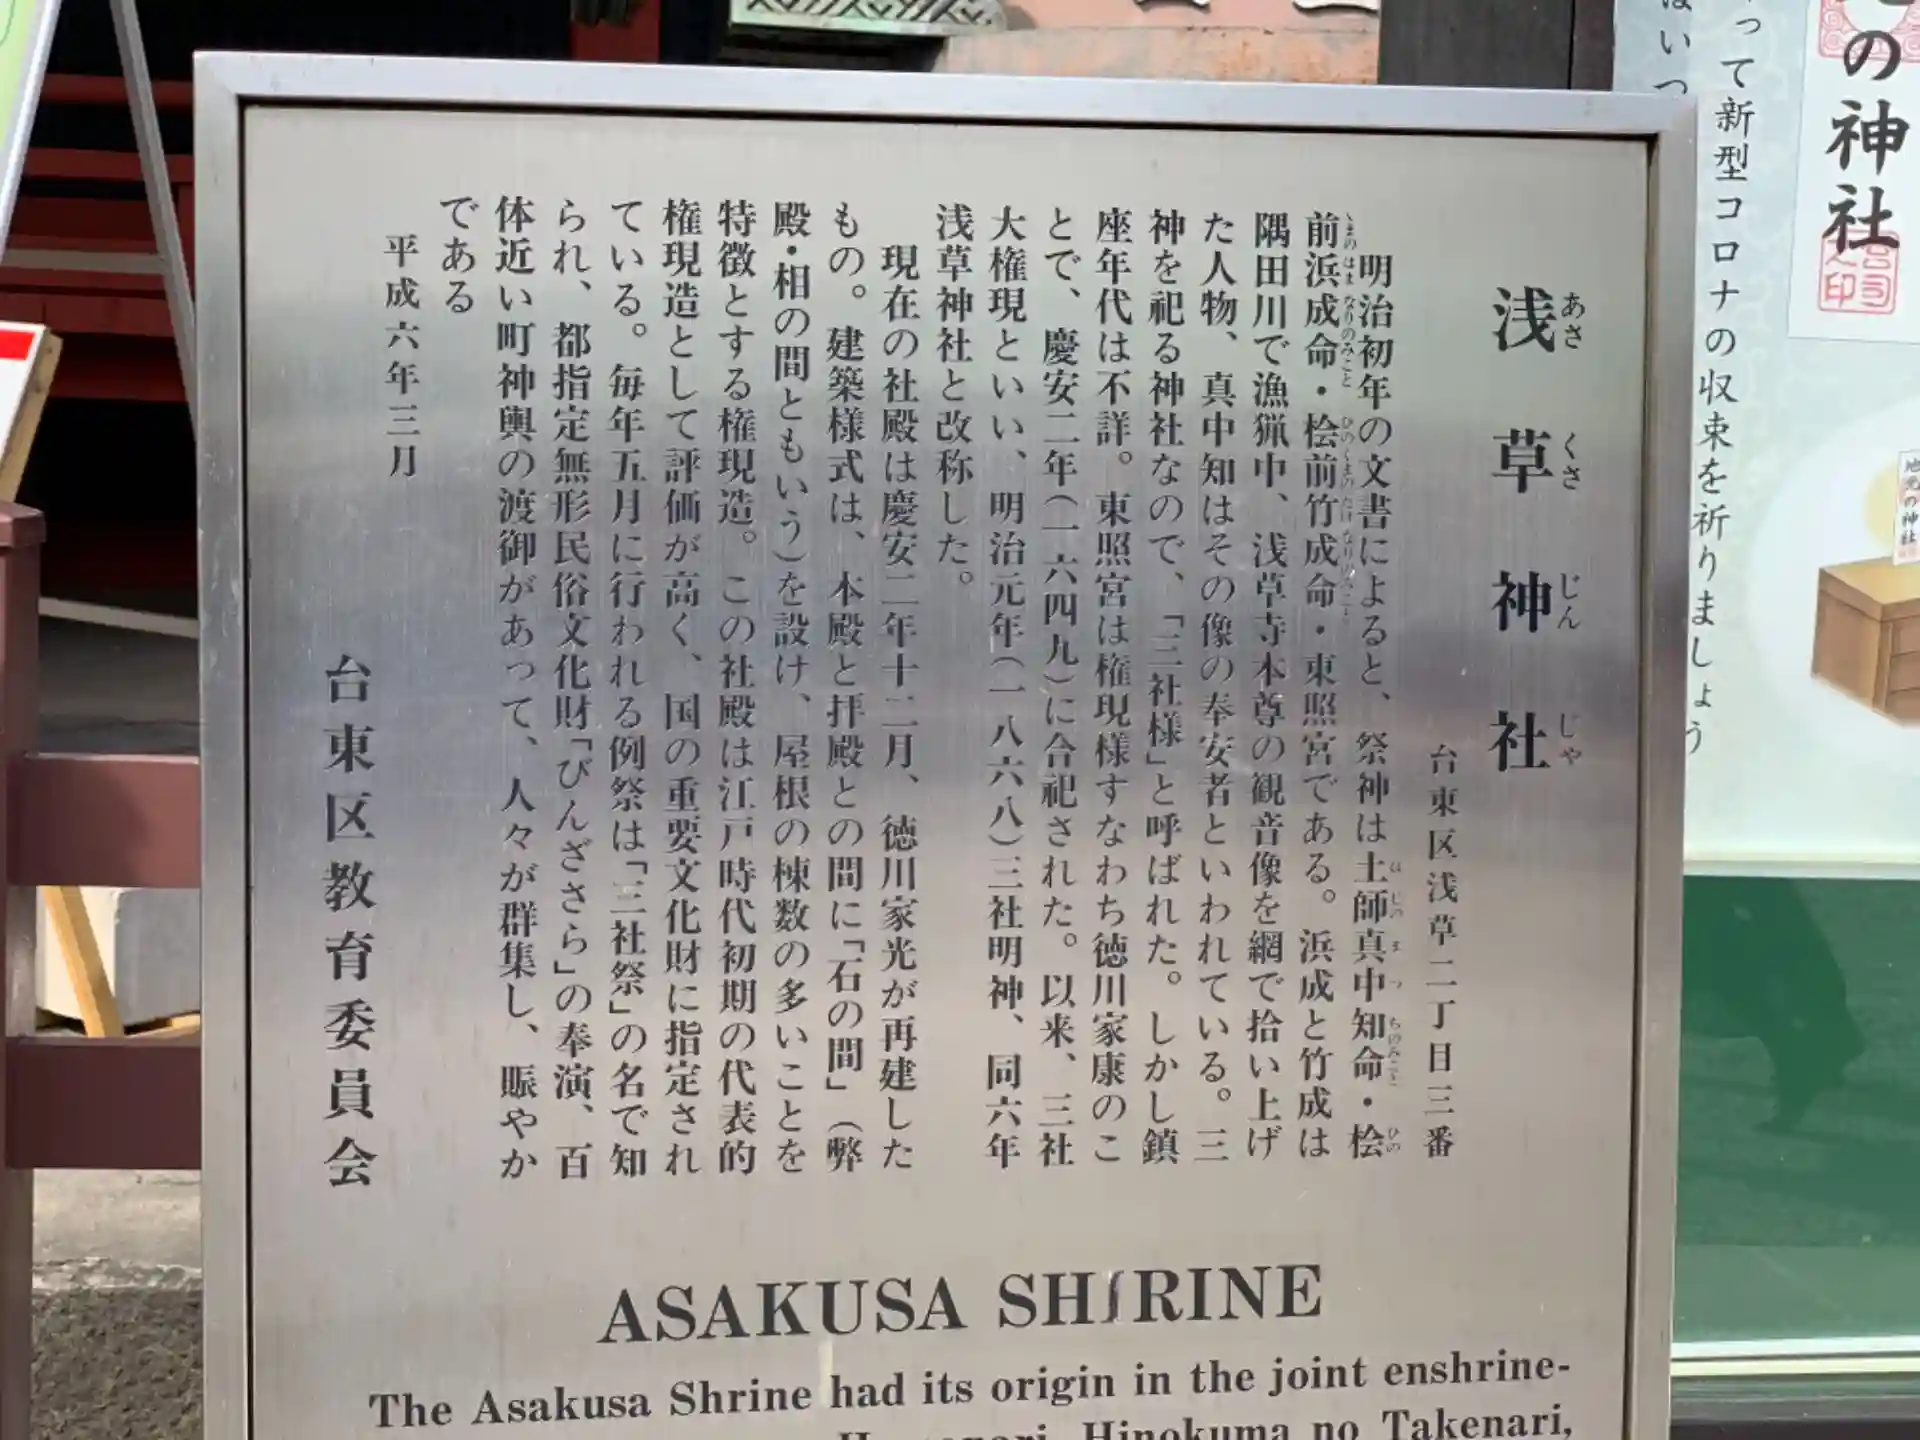 浅草神社
あさくさじんじゃ
台東区浅草二丁目三番
明治初年の文書によると、祭神は土師真中知命・桧
前浜成命・桧前竹成命・東照宮である。浜成と竹成は
隅田川で漁猟中、浅草寺本尊の観音像を網で拾い上げ
た人物、真中知はその像の奉安者といわれている。三
神を祀る神社なので、「三社様」と呼ばれた。しかし鎮
座年代は不詳。東照宮は権現様すなわち徳川家康のこ
とで、慶安二年(一六四九)に合祀された。以来、三社
大権現といい、明治元年(一八六八)三社明神、同六年
浅草神社と改称した。
現在の社殿は慶安二年十二月、徳川家光が再建した
もの。建築様式は、本殿と拝殿との間に「石の間」(弊
殿・相の間ともいう)を設け、屋根の棟数の多いことを
特徴とする権現造。この社殿は江戸時代初期の代表的
権現造として評価が高く、国の重要文化財に指定され
ている。毎年五月に行われる例祭は「三社祭」の名で知
られ、都指定無形民俗文化財「びんざさら」の奉演、百
体近い町神輿の渡御があって、人々が群集し、賑やか
である
平成六年三月
台東区教育委員会
ASAKUSA SHRINE
The Asakusa Shrine had its origin in the joint enshrine-
Hinokuma no Takenari,
の神社
って新型コロナの収束を祈りましょう
はいつ
地元の神社